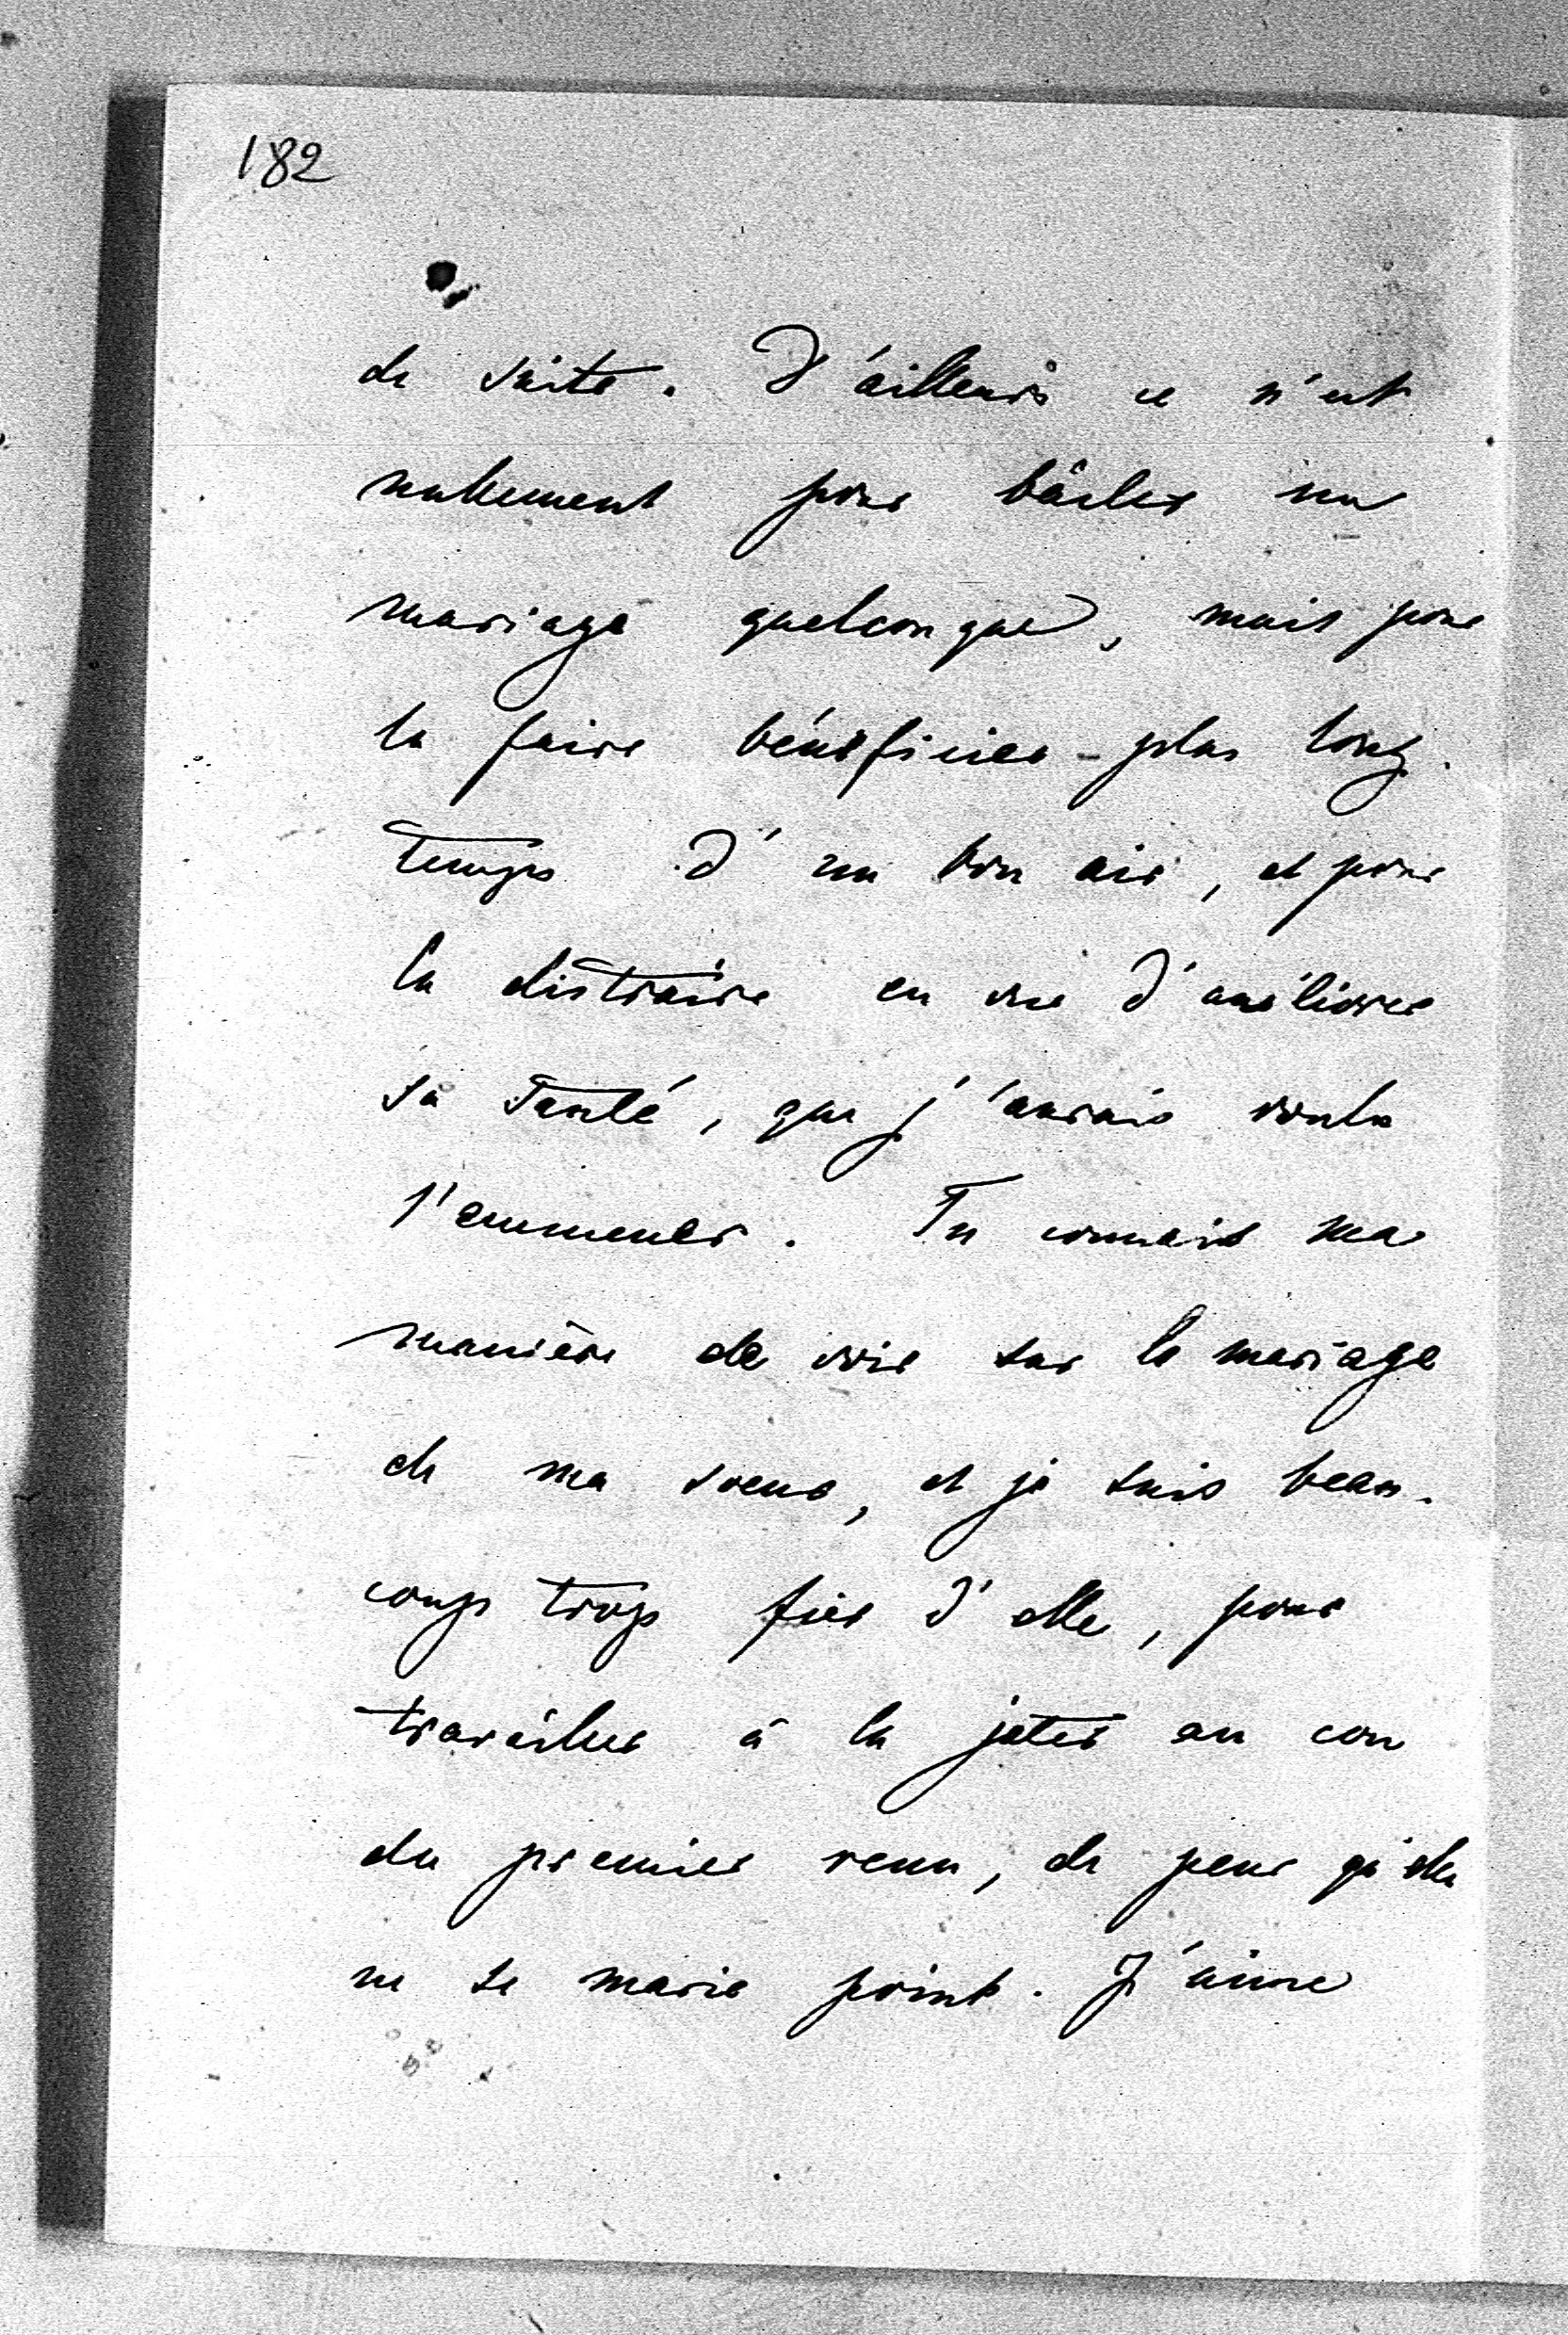 182
de suite. D'ailleurs ce n'est
nullement pour bâcler un
mariage quelconque, mais pour
la faire bénéficier plus long-
temps d'un bon air, et pour
la distraire en vue d'améliorer
sa santé, que j'aurais voulu
l'emmener. Tu connais ma
manière de voir sur le mariage
de ma soeur, et je suis beau-
coup trop fier d'elle, pour
travailler à la jeter au cou
du premier venu, de peur qu'elle
ne se marie point. J'aime